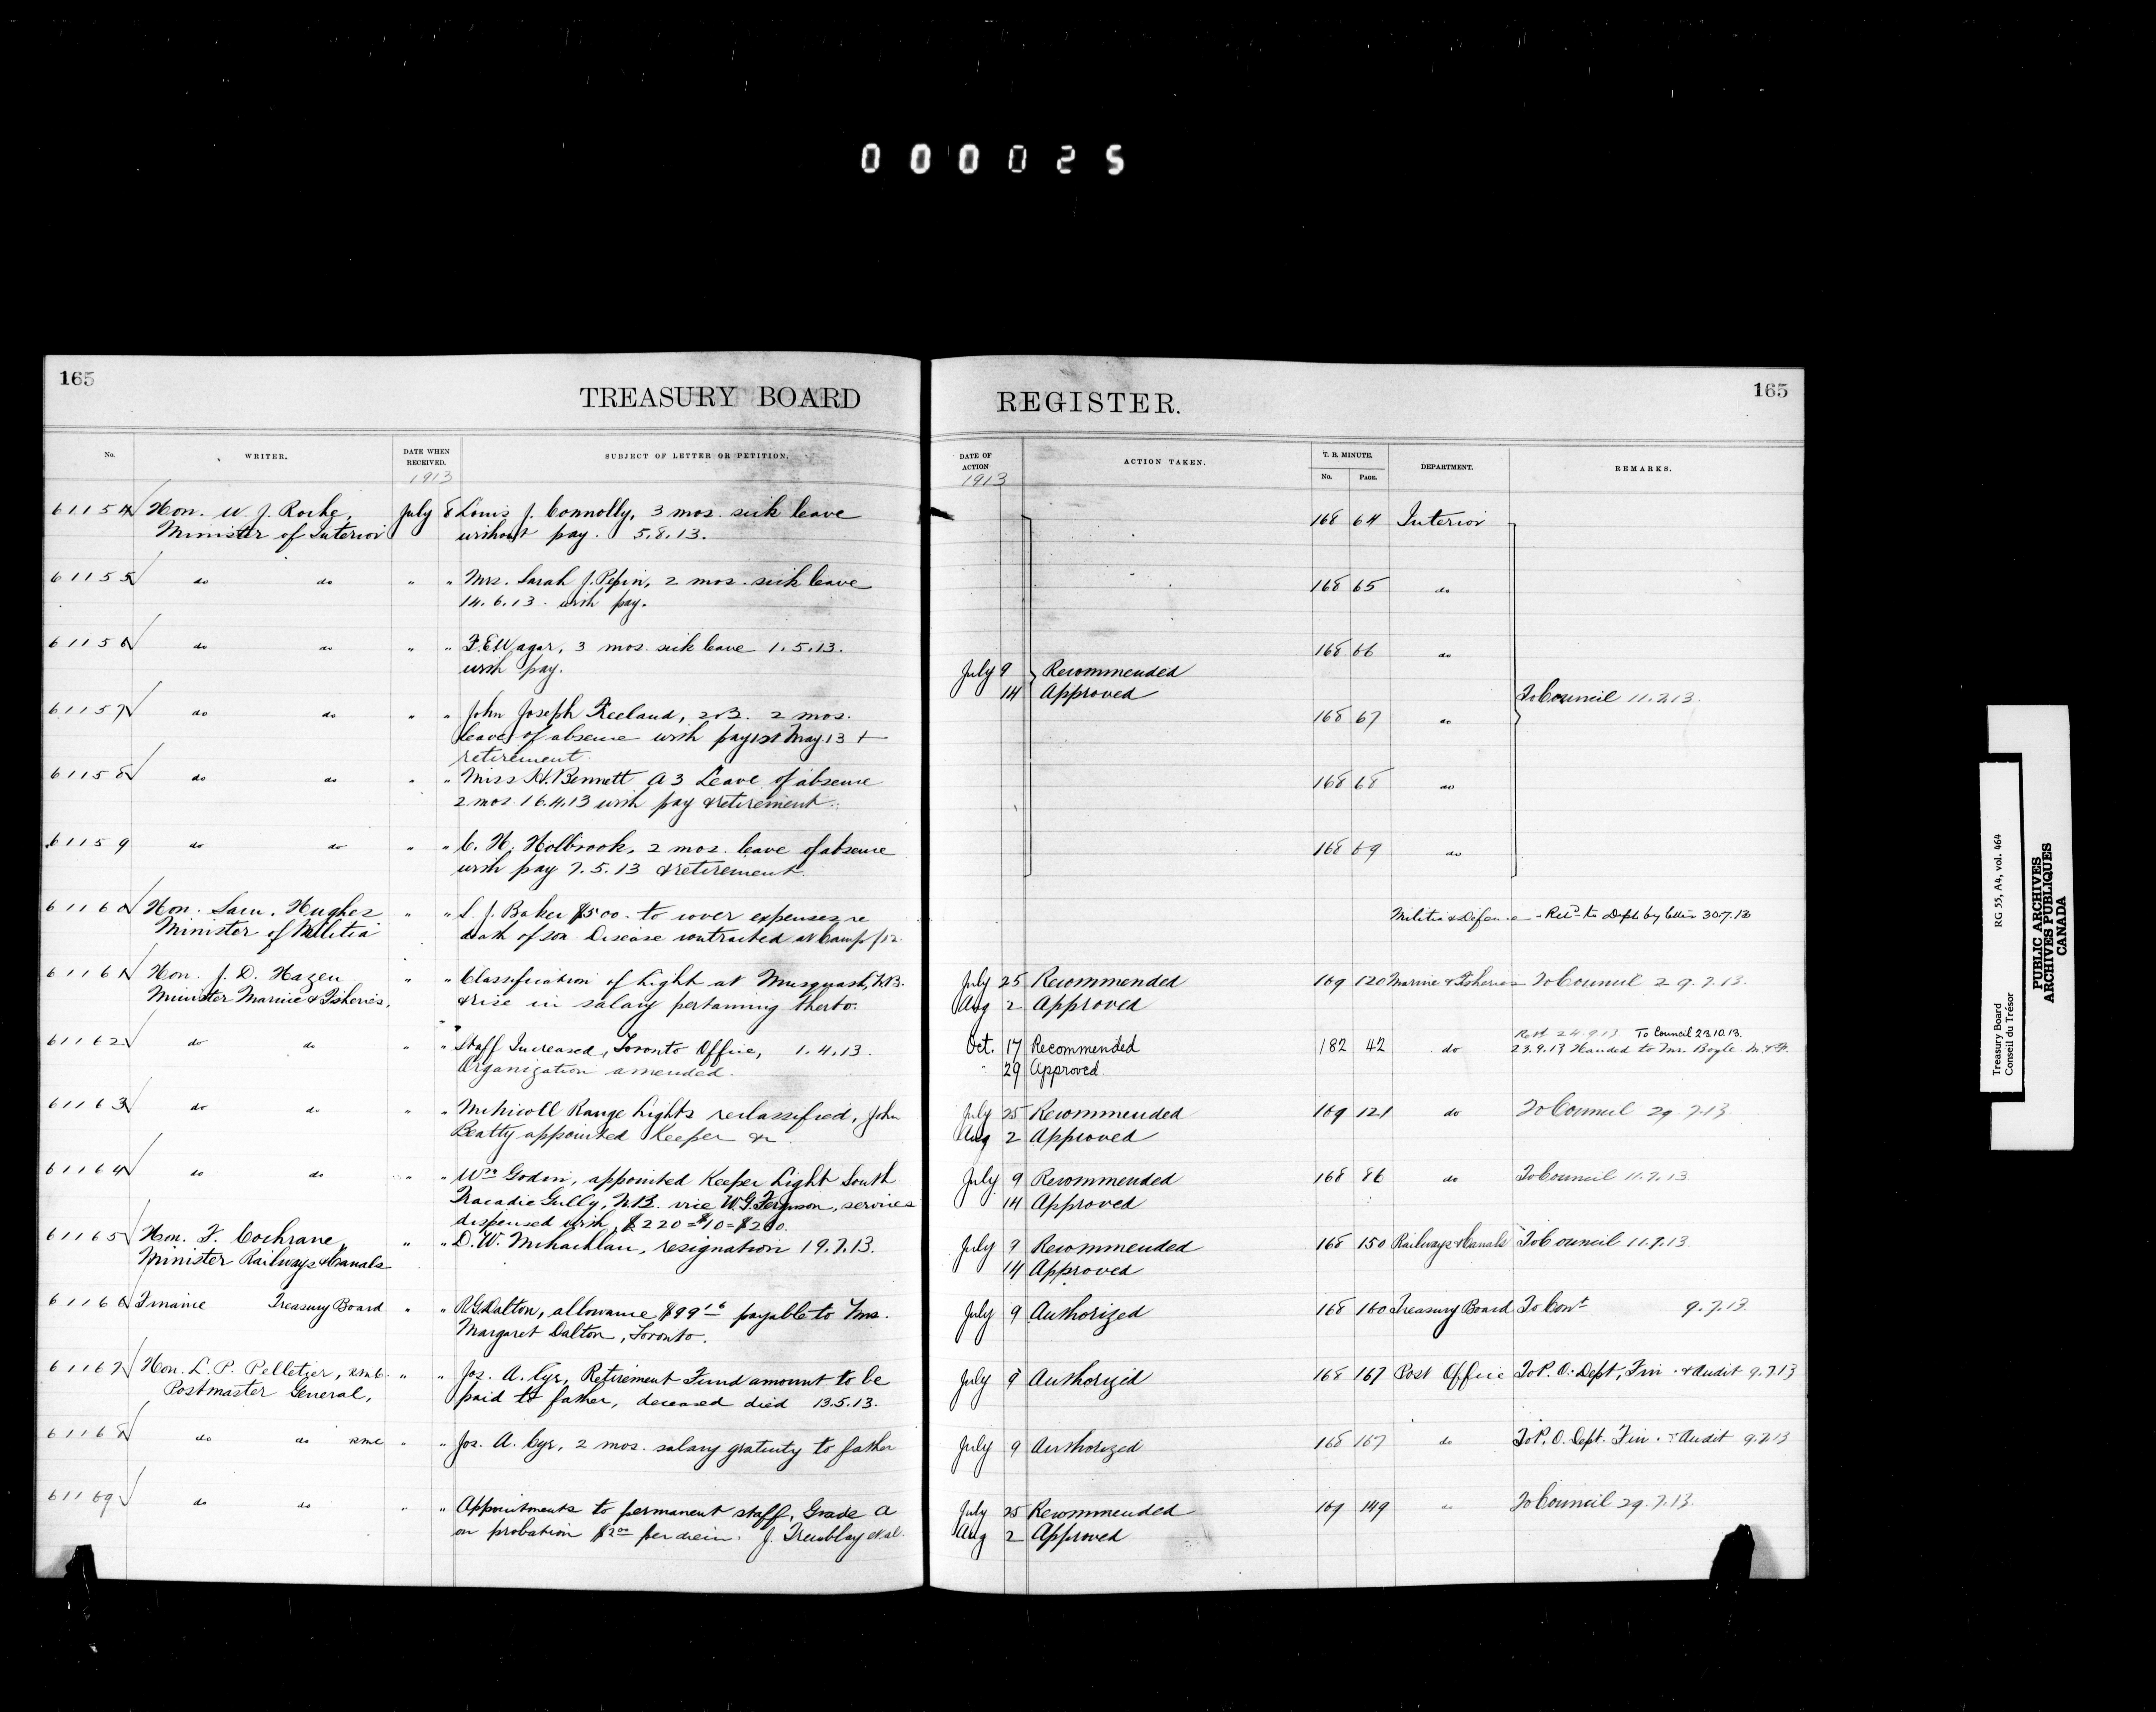 000025
165
TREASURY BOARD
REGISTER.
165
No.
WRITER.
DATE WHEN RECEIVED.
SUBJECT OF LETTER OR PETITION.
DATE OF ACTION
ACTION TAKEN.
T. B. MINUTE.
No. PAGE.
DEPARTMENT.
REMARKS.
1913
1913
61154 Hon. W. J. Roche, July 8 Louis J. Connolly, 3 mos. sick leave 168 64 Interior
Minister of Interior without pay. 5.8.13.
61155 do do " " Mrs. Sarah J. Pepin, 2 mos. sick leave 168 65 do
14.6.13 with pay.
61156 do do " " F. E. Wagar, 3 mos. sick leave 1.5.13. 168 66 do
with pay. July 9 Recommended
14 Approved To Council 11.7.13.
61157 do do " " John Joseph Freeland, 2B. 2 mos. 168 67 do
leave of absence with pay 1st May 13 +
retirement.
61158 do do " " Miss H. Bennett A3 Leave of absence 168 68 do
2 mos. 16.4.13 with pay & retirement.
61159 do do " " C. H. Holbrook, 2 mos. leave of absence 168 69 do
with pay 7.5.13 & retirement.
61160 Hon. Sam. Hughes " " S. J. Baker $500. to cover expenses re Militia & Defence - Ret'd to Dept by letter 30.7.13
Minister of Militia death of son. Disease contracted at Camp /12.
61161 Hon. J. D. Hazen " " Classification of Light at Musquash, N.B. July 25 Recommended 169 120 Marine & Fisheries To Council 29.7.13.
Minister Marine & Fisheries, & rise in salary pertaining therto. Aug 2 Approved
61162 do do " " Staff Increased, Toronto Office, 1.4.13. Oct. 17 Recommended 182 42 do To Council 23.10.13.
Organization amended. " 29 Approved 23.9.13 Handed to Mr. Boyle M. & F.
61163 do do " " McNicoll Range Lights reclassified, John July 25 Recommended 169 121 do To Council 29.7.13.
Beatty appointed Keeper &c Aug 2 Approved
61164 do do " " Wm Godin, appointed Keeper Light South July 9 Recommended 168 86 do To Council 11.7.13.
Tracadie Gully, N.B. vice W. G. Ferguson, services 14 Approved
dispensed with, $220 = $10 = $210.
61165 Hon. F. Cochrane, " " D. W. McLachlan, resignation 19.7.13. July 9 Recommended 168 150 Railways & Canals To Council 11.7.13
Minister Railways & Canals 14 Approved
61166 Finance Treasury Board " " R. G. Dalton, allowance $99.16 payable to Mrs. July 9 Authorized 168 160 Treasury Board To Cont 9.7.13.
Margaret Dalton, Toronto.
61167 Hon. L. P. Pelletier, RMC " " Jos. A. Cyr, Retirement Fund amount to be July 9 Authorized 168 167 Post Office To P.O. Dept, Fin. & Audit 9.7.13
Postmaster General, paid to father, deceased died 13.5.13.
61168 do do RMC " " Jos. A. Cyr, 2 mos. salary gratuity to father July 9 Authorized 168 167 do To P.O. Dept. Fin. & Audit 9.7.13
61169 do do " " Appointments to permanent staff, Grade A July 25 Recommended 169 149 do To Council 29.7.13.
on probation $2.00 per diem. J. Tremblay et al. Aug 2 Approved
Treasury Board RG 55, A4, vol. 464
Conseil du Trésor
PUBLIC ARCHIVES
ARCHIVES PUBLIQUES
CANADA